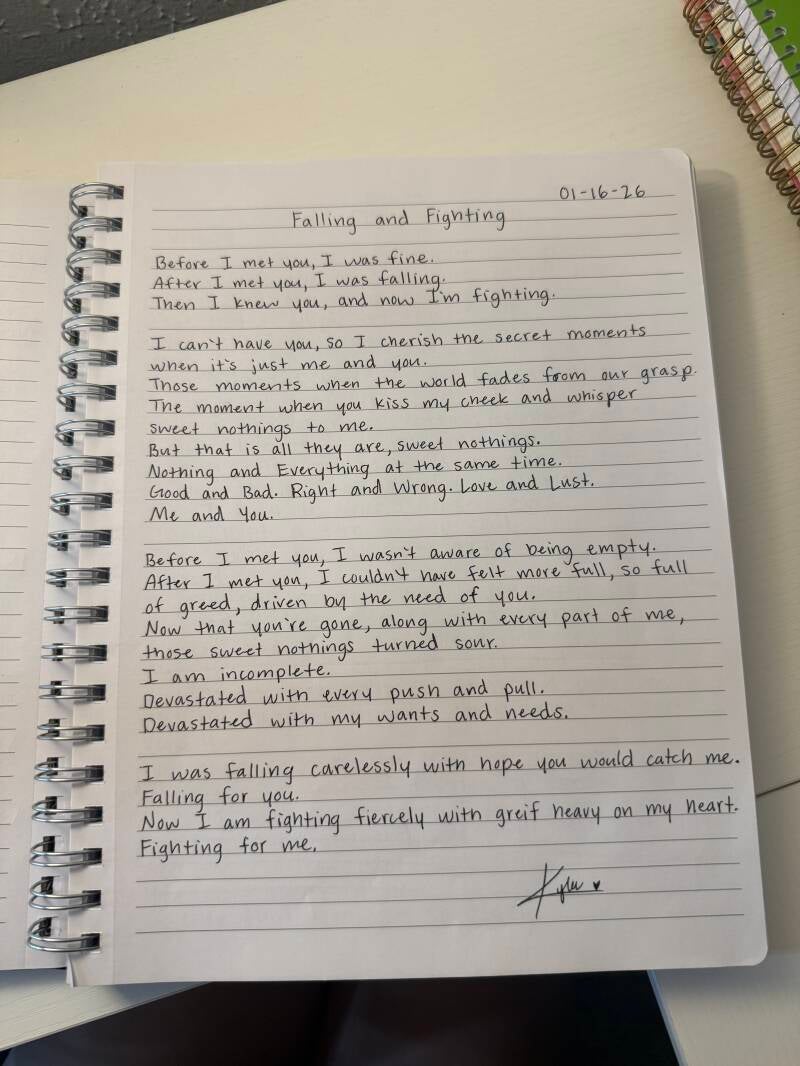 01-16-26
Falling and Fighting
Before I met you, I was fine.
After I met you, I was falling.
Then I knew you, and now I'm fighting.
I can't have you, so I cherish the secret moments
when it's just me and you.
Those moments when the world fades from our grasp.
The moment when you kiss my cheek and whisper
sweet nothings to me.
But that is all they are, sweet nothings.
Nothing and Everything at the same time.
Good and Bad. Right and Wrong. Love and Lust.
Me and You.
Before I met you, I wasn't aware of being empty.
After I met you, I couldn't have felt more full, so full
of greed, driven by the need of you.
Now that you're gone, along with every part of me,
those sweet nothings turned sour.
I am incomplete.
Devastated with every push and pull.
Devastated with my wants and needs.
I was falling carelessly with hope you would catch me.
Falling for you.
Now I am fighting fiercely with greif heavy on my heart.
Fighting for me.